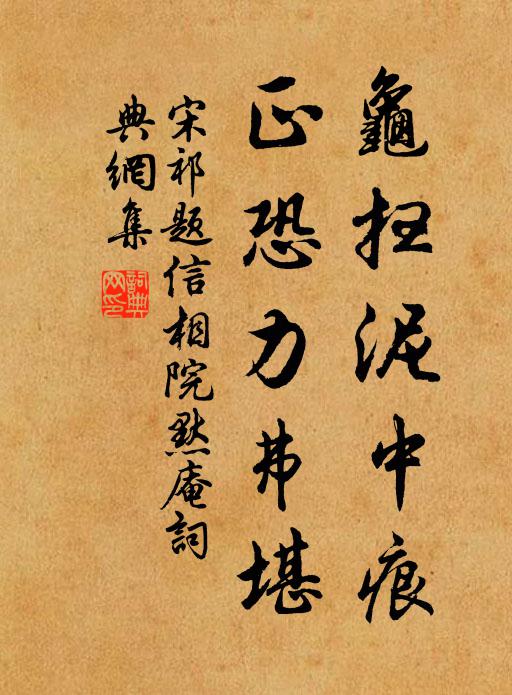 龜抂泥中痕
正恐力弗堪
宋祁題信相院默庵詞
典網集
詞典网印